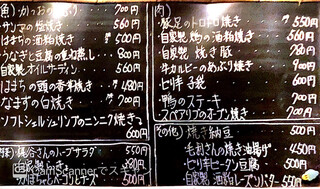 魚) かつおのたたき 700円
サンマの塩焼き 560円
はまちの油粕焼き 500円
うなぎと豆腐の重ね蒸し 800円
自家製オイルサーディン 560円
はまちの頭の香味焼き 480円
なまずの白焼き 700円
ソフトシェルシュリンプのニンニク焼き
600円
さんのハーブサラダ 550円
380円
500円
肉)
豚足のトロトロ焼き 550円
自家製 鶏の油粕焼き 560円
自家製 焼き豚 780円
牛カルビーのあぶり焼き 900円
セリ辛子和 600円
鴨のステーキ 700円
スペアリブのオーブン焼き 700円
その他) 焼き納豆 500円
毛利さんの焼き油揚げ 450円
セリ辛ピータン豆腐 500円
自家製 酒粕レーズンバター 550円
CamScannerでスキ